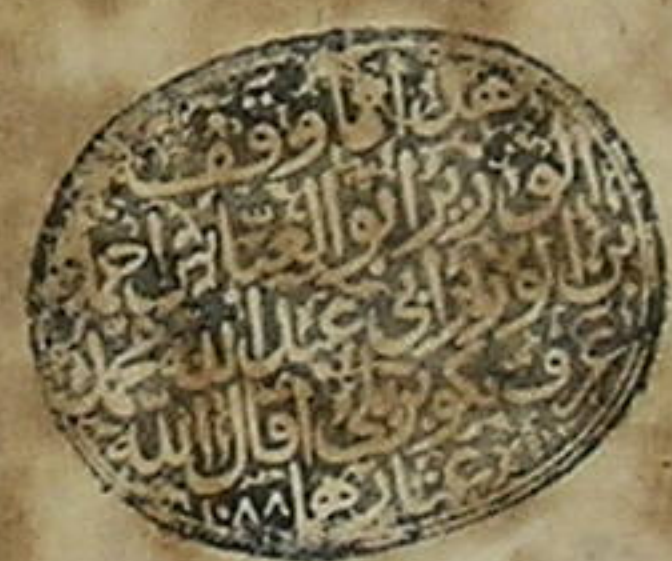 هذا مما وقف
الوزير ابو العباس احمد
ابن الوزير ابي عبد الله محمد
عرف بكوپريلي اقال الله
عثارهما ١٠٨٨